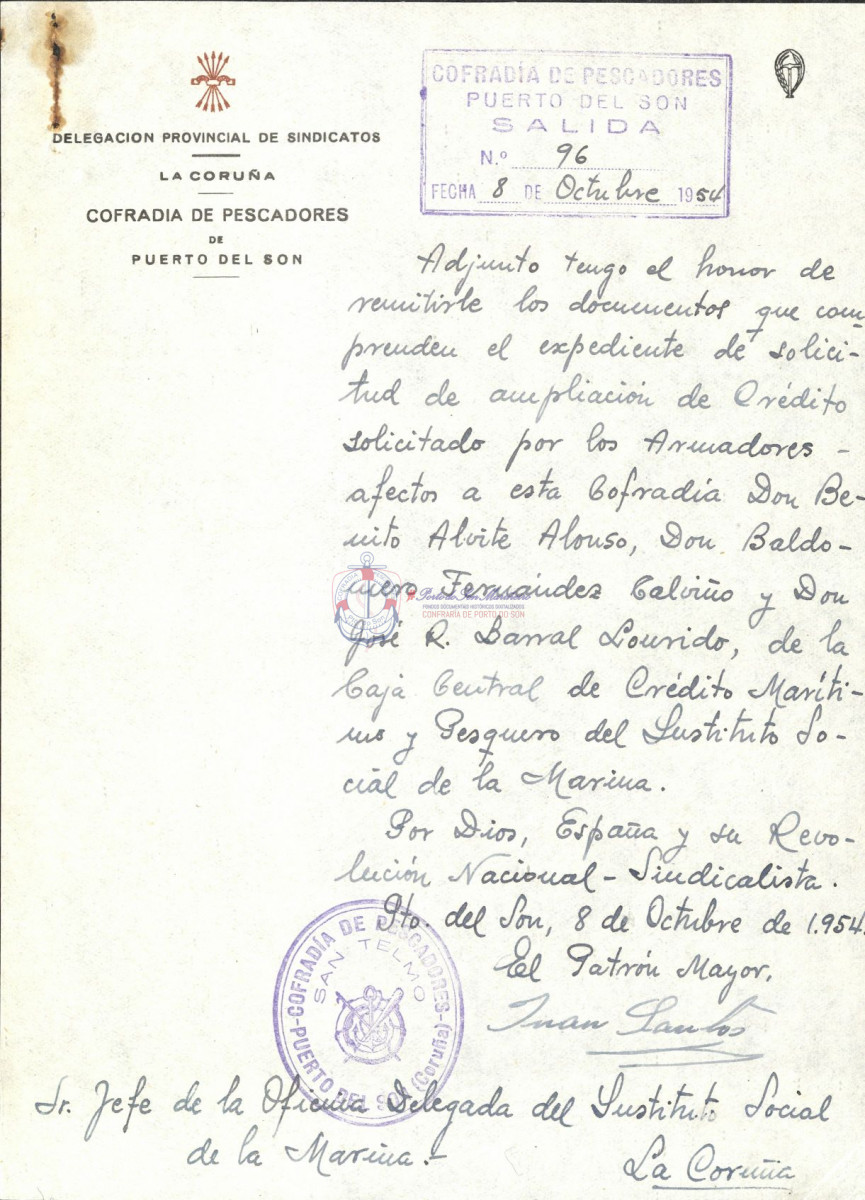 DELEGACION PROVINCIAL DE SINDICATOS
LA CORUÑA
COFRADIA DE PESCADORES
DE
PUERTO DEL SON
COFRADÍA DE PESCADORES
PUERTO DEL SON
SALIDA
N.º 96
FECHA 8 DE Octubre 1954
Adjunto tengo el honor de
remitirle los documentos que com-
prenden el expediente de solici-
tud de ampliación de Crédito
solicitado por los Armadores -
afectos a esta Cofradía Don Be-
nito Alvite Alonso, Don Baldo-
mero Fernández Calviño y Don
José R. Barral Lourido, de la
Caja Central de Crédito Maríti-
mo y Pesquero del Instituto So-
cial de la Marina.
Por Dios, España y su Revo-
lución Nacional-Sindicalista.
Pto. del Son, 8 de Octubre de 1.954.
El Patrón Mayor,
Juan Santos
COFRADÍA DE PESCADORES
SAN TELMO
PUERTO DEL SON (Coruña)
Sr. Jefe de la Oficina Delegada del Instituto Social
de la Marina.-
La Coruña
FONDOS DOCUMENTAIS HISTÓRICOS DIGITALIZADOS
CONFRARÍA DE PORTO DO SON